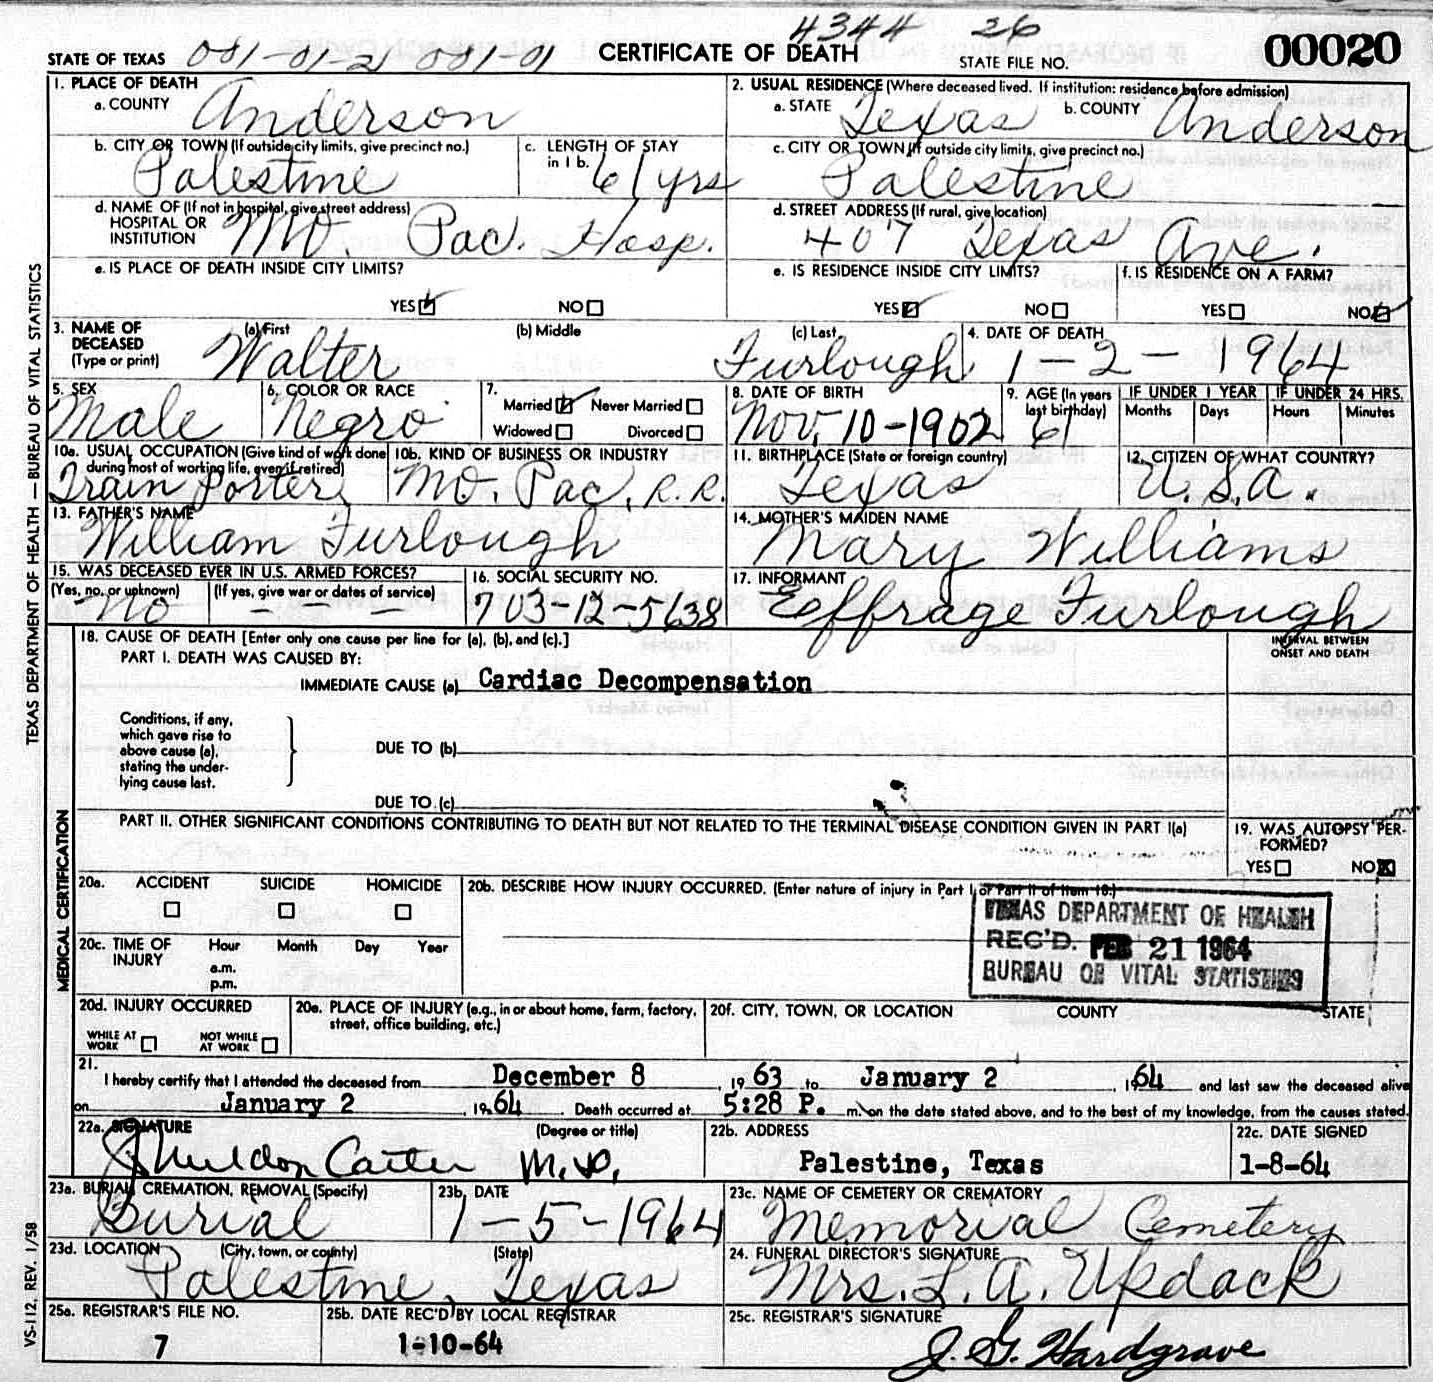 4344 26
STATE OF TEXAS 081-01-21 081-01 CERTIFICATE OF DEATH STATE FILE NO. 00020
1. PLACE OF DEATH
a. COUNTY Anderson
2. USUAL RESIDENCE (Where deceased lived. If institution: residence before admission)
a. STATE Texas b. COUNTY Anderson
b. CITY OR TOWN (If outside city limits, give precinct no.) Palestine
c. LENGTH OF STAY in 1 b. 61 yrs
c. CITY OR TOWN (If outside city limits, give precinct no.) Palestine
d. NAME OF (If not in hospital, give street address) HOSPITAL OR INSTITUTION Mo. Pac. Hosp.
d. STREET ADDRESS (If rural, give location) 407 Texas Ave.
e. IS PLACE OF DEATH INSIDE CITY LIMITS?
YES NO
e. IS RESIDENCE INSIDE CITY LIMITS?
YES NO
f. IS RESIDENCE ON A FARM?
YES NO
3. NAME OF DECEASED (Type or print) (a) First Walter (b) Middle (c) Last Furlough
4. DATE OF DEATH 1-2-1964
5. SEX Male
6. COLOR OR RACE Negro
7. Married Never Married
Widowed Divorced
8. DATE OF BIRTH Nov. 10-1902
9. AGE (In years last birthday) 61
IF UNDER 1 YEAR Months Days
IF UNDER 24 HRS. Hours Minutes
10a. USUAL OCCUPATION (Give kind of work done during most of working life, even if retired) Train Porter
10b. KIND OF BUSINESS OR INDUSTRY Mo. Pac. R.R.
11. BIRTHPLACE (State or foreign country) Texas
12. CITIZEN OF WHAT COUNTRY? U.S.A.
13. FATHER'S NAME William Furlough
14. MOTHER'S MAIDEN NAME Mary Williams
15. WAS DECEASED EVER IN U.S. ARMED FORCES?
(Yes, no, or unknown) No (If yes, give war or dates of service) - - -
16. SOCIAL SECURITY NO. 703-12-5638
17. INFORMANT Effrage Furlough
18. CAUSE OF DEATH [Enter only one cause per line for (a), (b), and (c).]
INTERVAL BETWEEN ONSET AND DEATH
PART I. DEATH WAS CAUSED BY:
IMMEDIATE CAUSE (a) Cardiac Decompensation
Conditions, if any, which gave rise to above cause (a), stating the underlying cause last.
DUE TO (b)
DUE TO (c)
PART II. OTHER SIGNIFICANT CONDITIONS CONTRIBUTING TO DEATH BUT NOT RELATED TO THE TERMINAL DISEASE CONDITION GIVEN IN PART I(a)
19. WAS AUTOPSY PERFORMED?
YES NO
20a. ACCIDENT SUICIDE HOMICIDE
20b. DESCRIBE HOW INJURY OCCURRED. (Enter nature of injury in Part I or Part II of item 18.)
TEXAS DEPARTMENT OF HEALTH
REC'D. FEB 21 1964
BUREAU OF VITAL STATISTICS
20c. TIME OF INJURY Hour Month Day Year
a.m.
p.m.
20d. INJURY OCCURRED
WHILE AT WORK NOT WHILE AT WORK
20e. PLACE OF INJURY (e.g., in or about home, farm, factory, street, office building, etc.)
20f. CITY, TOWN, OR LOCATION COUNTY STATE
21. I hereby certify that I attended the deceased from December 8, 1963 to January 2, 1964 and last saw the deceased alive
on January 2, 1964. Death occurred at 5:28 P. m. on the date stated above, and to the best of my knowledge, from the causes stated.
22a. SIGNATURE (Degree or title) Sheldon Carter M.D.
22b. ADDRESS Palestine, Texas
22c. DATE SIGNED 1-8-64
23a. BURIAL, CREMATION, REMOVAL (Specify) Burial
23b. DATE 1-5-1964
23c. NAME OF CEMETERY OR CREMATORY Memorial Cemetery
23d. LOCATION (City, town, or county) (State) Palestine, Texas
24. FUNERAL DIRECTOR'S SIGNATURE Mrs. L. A. Updack
25a. REGISTRAR'S FILE NO. 7
25b. DATE REC'D BY LOCAL REGISTRAR 1-10-64
25c. REGISTRAR'S SIGNATURE J. G. Hardgrave
TEXAS DEPARTMENT OF HEALTH — BUREAU OF VITAL STATISTICS
MEDICAL CERTIFICATION
VS-112, REV. 1/58